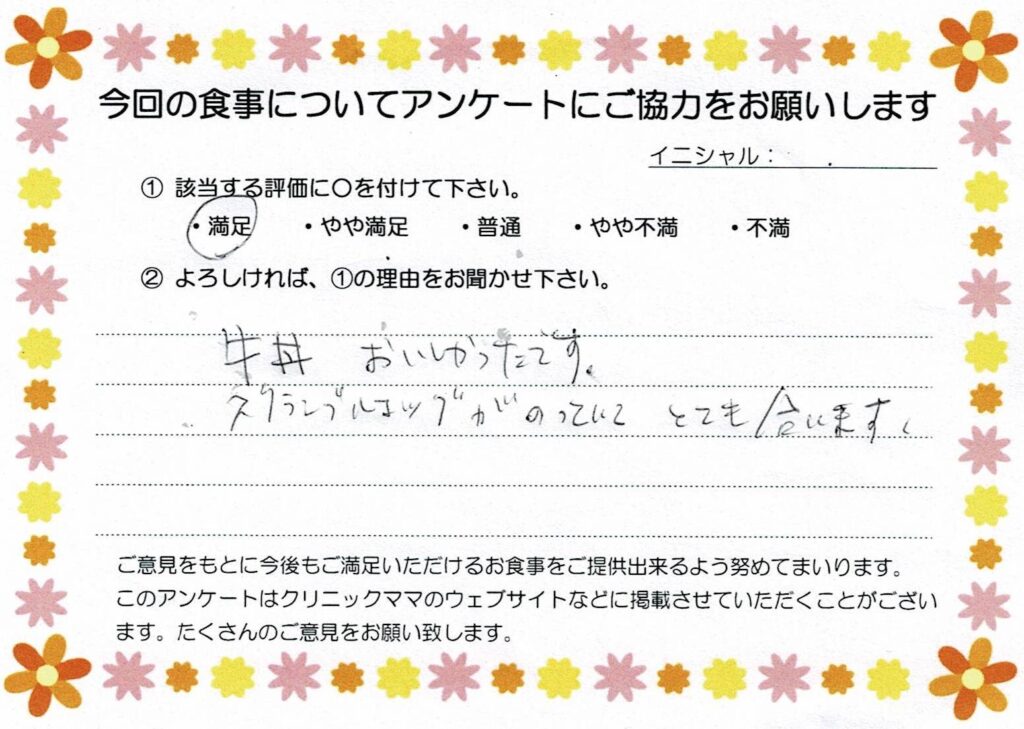 今回の食事についてアンケートにご協力をお願いします
イニシャル：
① 該当する評価に〇を付けて下さい。
・満足 ・やや満足 ・普通 ・やや不満 ・不満
② よろしければ、①の理由をお聞かせ下さい。
牛丼 おいしかったです。
スクランブルエッグがのっていて とても合います。
ご意見をもとに今後もご満足いただけるお食事をご提供出来るよう努めてまいります。
このアンケートはクリニックママのウェブサイトなどに掲載させていただくことがござい
ます。たくさんのご意見をお願い致します。